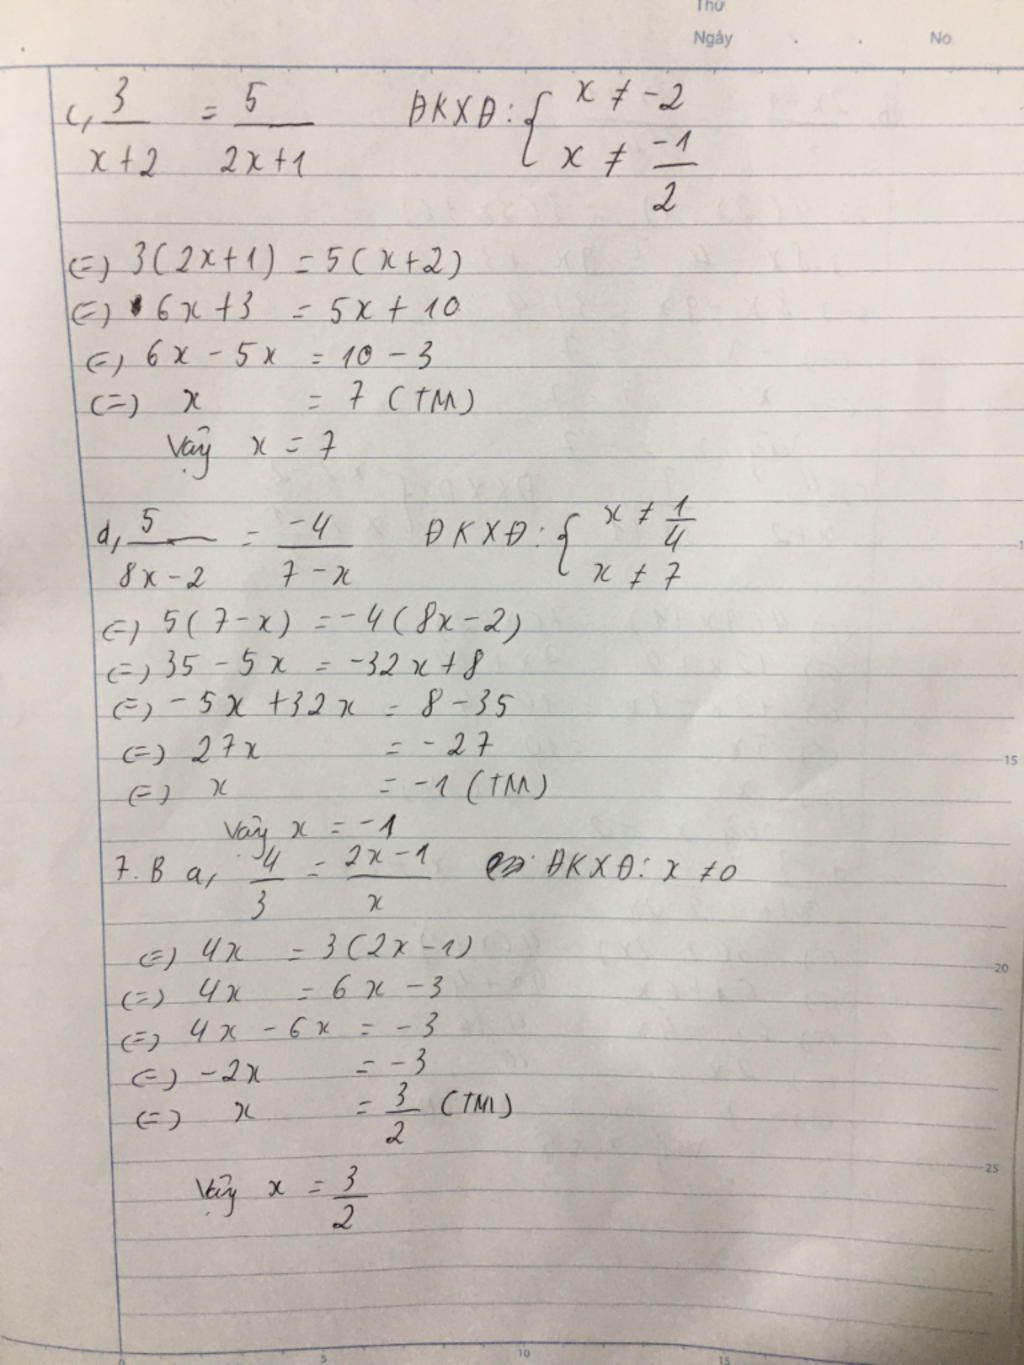 Thứ
Ngày . . No
c, 3/(x+2) = 5/(2x+1) ĐKXĐ: { x ≠ -2
x ≠ -1/2
(=) 3(2x+1) = 5(x+2)
(=) 6x+3 = 5x+10
(=) 6x-5x = 10-3
(=) x = 7 (TM)
Vậy x = 7
d, 5/(8x-2) = -4/(7-x) ĐKXĐ: { x ≠ 1/4
x ≠ 7
(=) 5(7-x) = -4(8x-2)
(=) 35-5x = -32x+8
(=) -5x+32x = 8-35
(=) 27x = -27
(=) x = -1 (TM)
Vậy x = -1
7.B a, 4/3 = (2x-1)/x ĐKXĐ: x ≠ 0
(=) 4x = 3(2x-1)
(=) 4x = 6x-3
(=) 4x-6x = -3
(=) -2x = -3
(=) x = 3/2 (TM)
Vậy x = 3/2
15
20
25
0 5 10 15